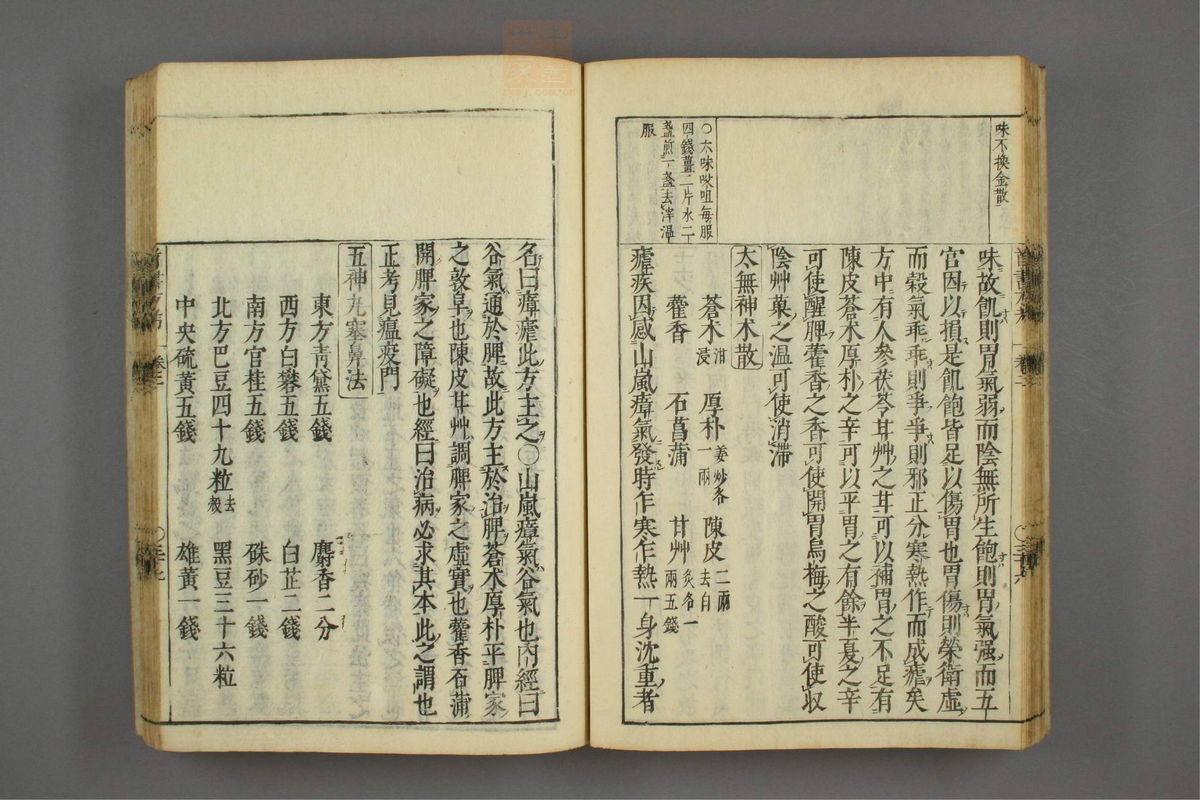 味不換金散
味故飢則胃氣弱而陰無所生飽則胃氣强而五
官因以損是飢飽皆足以傷胃也胃傷則榮衛虛
而穀氣乖乖則爭爭則邪正分寒熱作而成瘧矣
方中有人參茯苓甘艸之甘可以補胃之不足有
陳皮蒼朮厚朴之辛可以平胃之有餘半夏之辛
可使醒脾藿香之香可使開胃烏梅之酸可使收
陰艸菓之温可使消滯
○六味㕮咀每服
四錢薑二片水二
盞煎一盞去滓温
服
太無神朮散
蒼朮 泔浸 厚朴 姜炒各一兩 陳皮 二兩去白
藿香 石菖蒲 甘艸 炙各一兩五錢
瘧疾因感山嵐瘴氣發時作寒作熱一身沈重者
名曰瘴瘧此方主之○山嵐瘴氣谷氣也內經曰
谷氣通於脾故此方主於治脾蒼朮厚朴平脾家
之敦阜也陳皮甘艸調脾家之虛實也藿香石蒲
開脾家之障礙也經曰治病必求其本此之謂也
正考見瘟疫門
五神丸塞鼻法
東方青黛五錢 麝香二分
西方白礬五錢 白芷二錢
南方官桂五錢 硃砂一錢
北方巴豆四十九粒 去殼 黑豆三十六粒
中央硫黃五錢 雄黃一錢